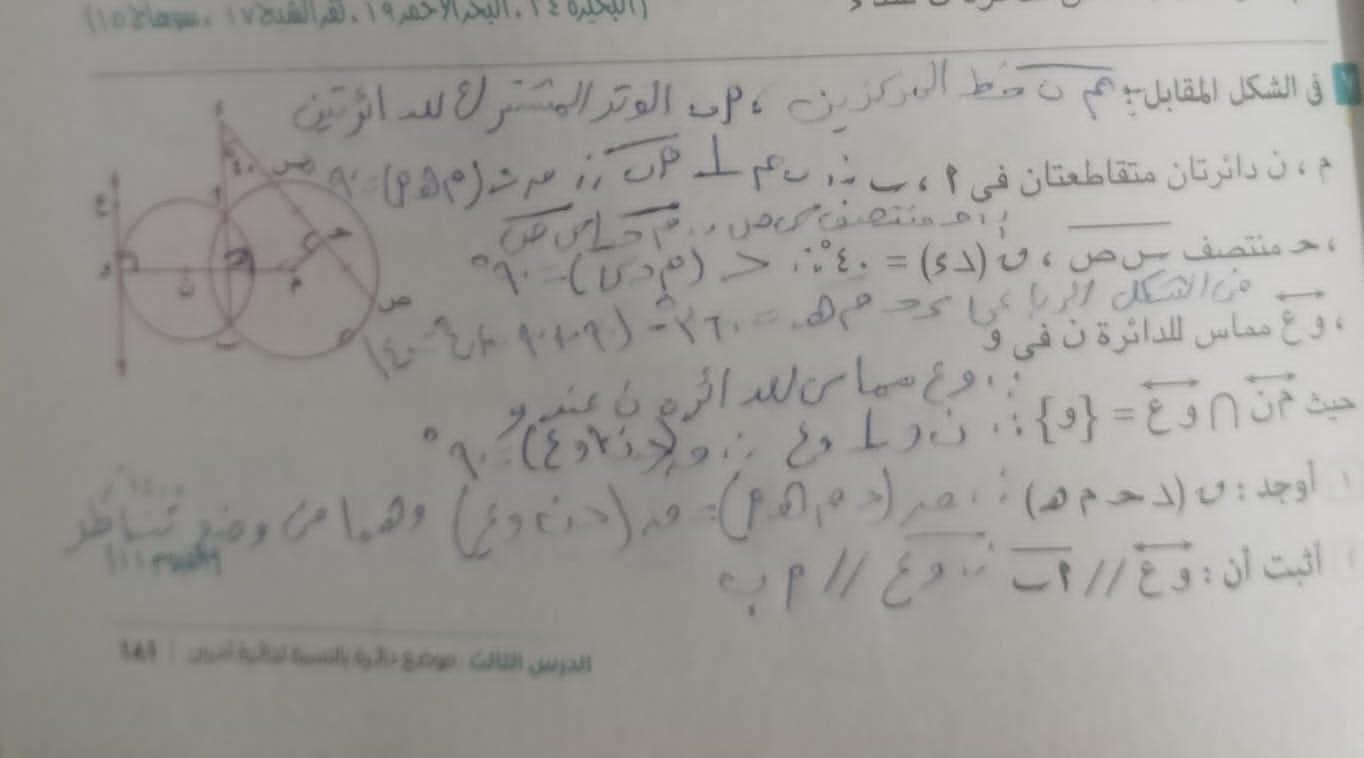 (البحيرة ٢٤ ، البحر الأحمر ١٩ ، كفر الشيخ ١٧ ، سوهاج ١٥)
فى الشكل المقابل : م ن خط المركزين ، ٢ب الوتر المشترك للدائرتين
م ، ن دائرتان متقاطعتان فى ٢ ، ب ∵ ن م ⊥ ٢ب ∴ = ٩٠
∵ حـ منتصف س ص ∴ م حـ ⊥ س ص
، حـ منتصف س ص ، ق (د ء) = ٤٠° ∴ = ٩٠°
من الشكل الرباعي ء حـ م هـ = ٣٦٠ - (٩٠ + ٩٠ + ٤٠) = ١٤٠
، و ع مماس للدائرة ن فى و
∵ و ع مماس للدائرة ن عند و
حيث م ن ∩ و ع = {و} ∴ ن و ⊥ و ع ∴ (ن و ع) = ٩٠°
١ أوجد : ق (د حـ م هـ) ∴ (د م هـ ٢) = (د ن و ع) وهما في وضع تناظر
أثبت أن : و ع // ٢ب ∴ و ع // ٢ ب
الدرس الثالث : موضع دائرة بالنسبة لدائرة أخرى | ١٨١
ء
٤٠
س
٢
ع
حـ
هـ
و
ن
م
ص
ب